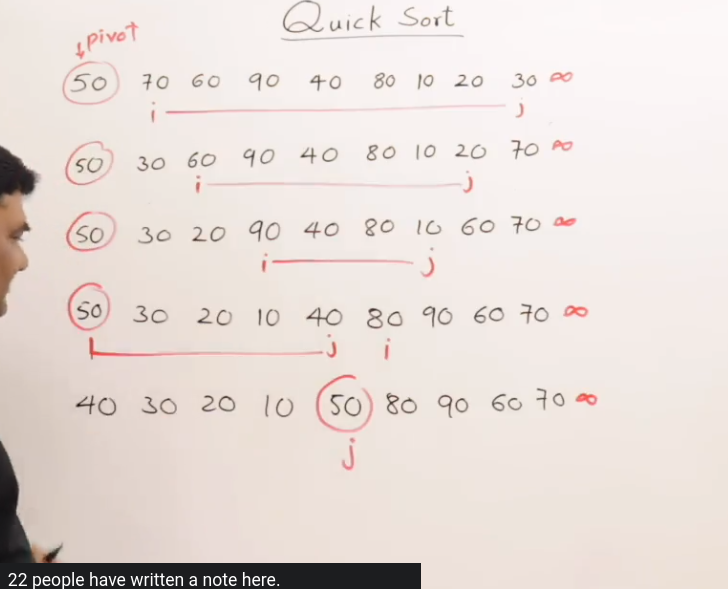 Quick Sort
↓pivot
50 70 60 90 40 80 10 20 30 ∞
i j
50 30 60 90 40 80 10 20 70 ∞
i j
50 30 20 90 40 80 10 60 70 ∞
i j
50 30 20 10 40 80 90 60 70 ∞
j i
40 30 20 10 50 80 90 60 70 ∞
j
22 people have written a note here.